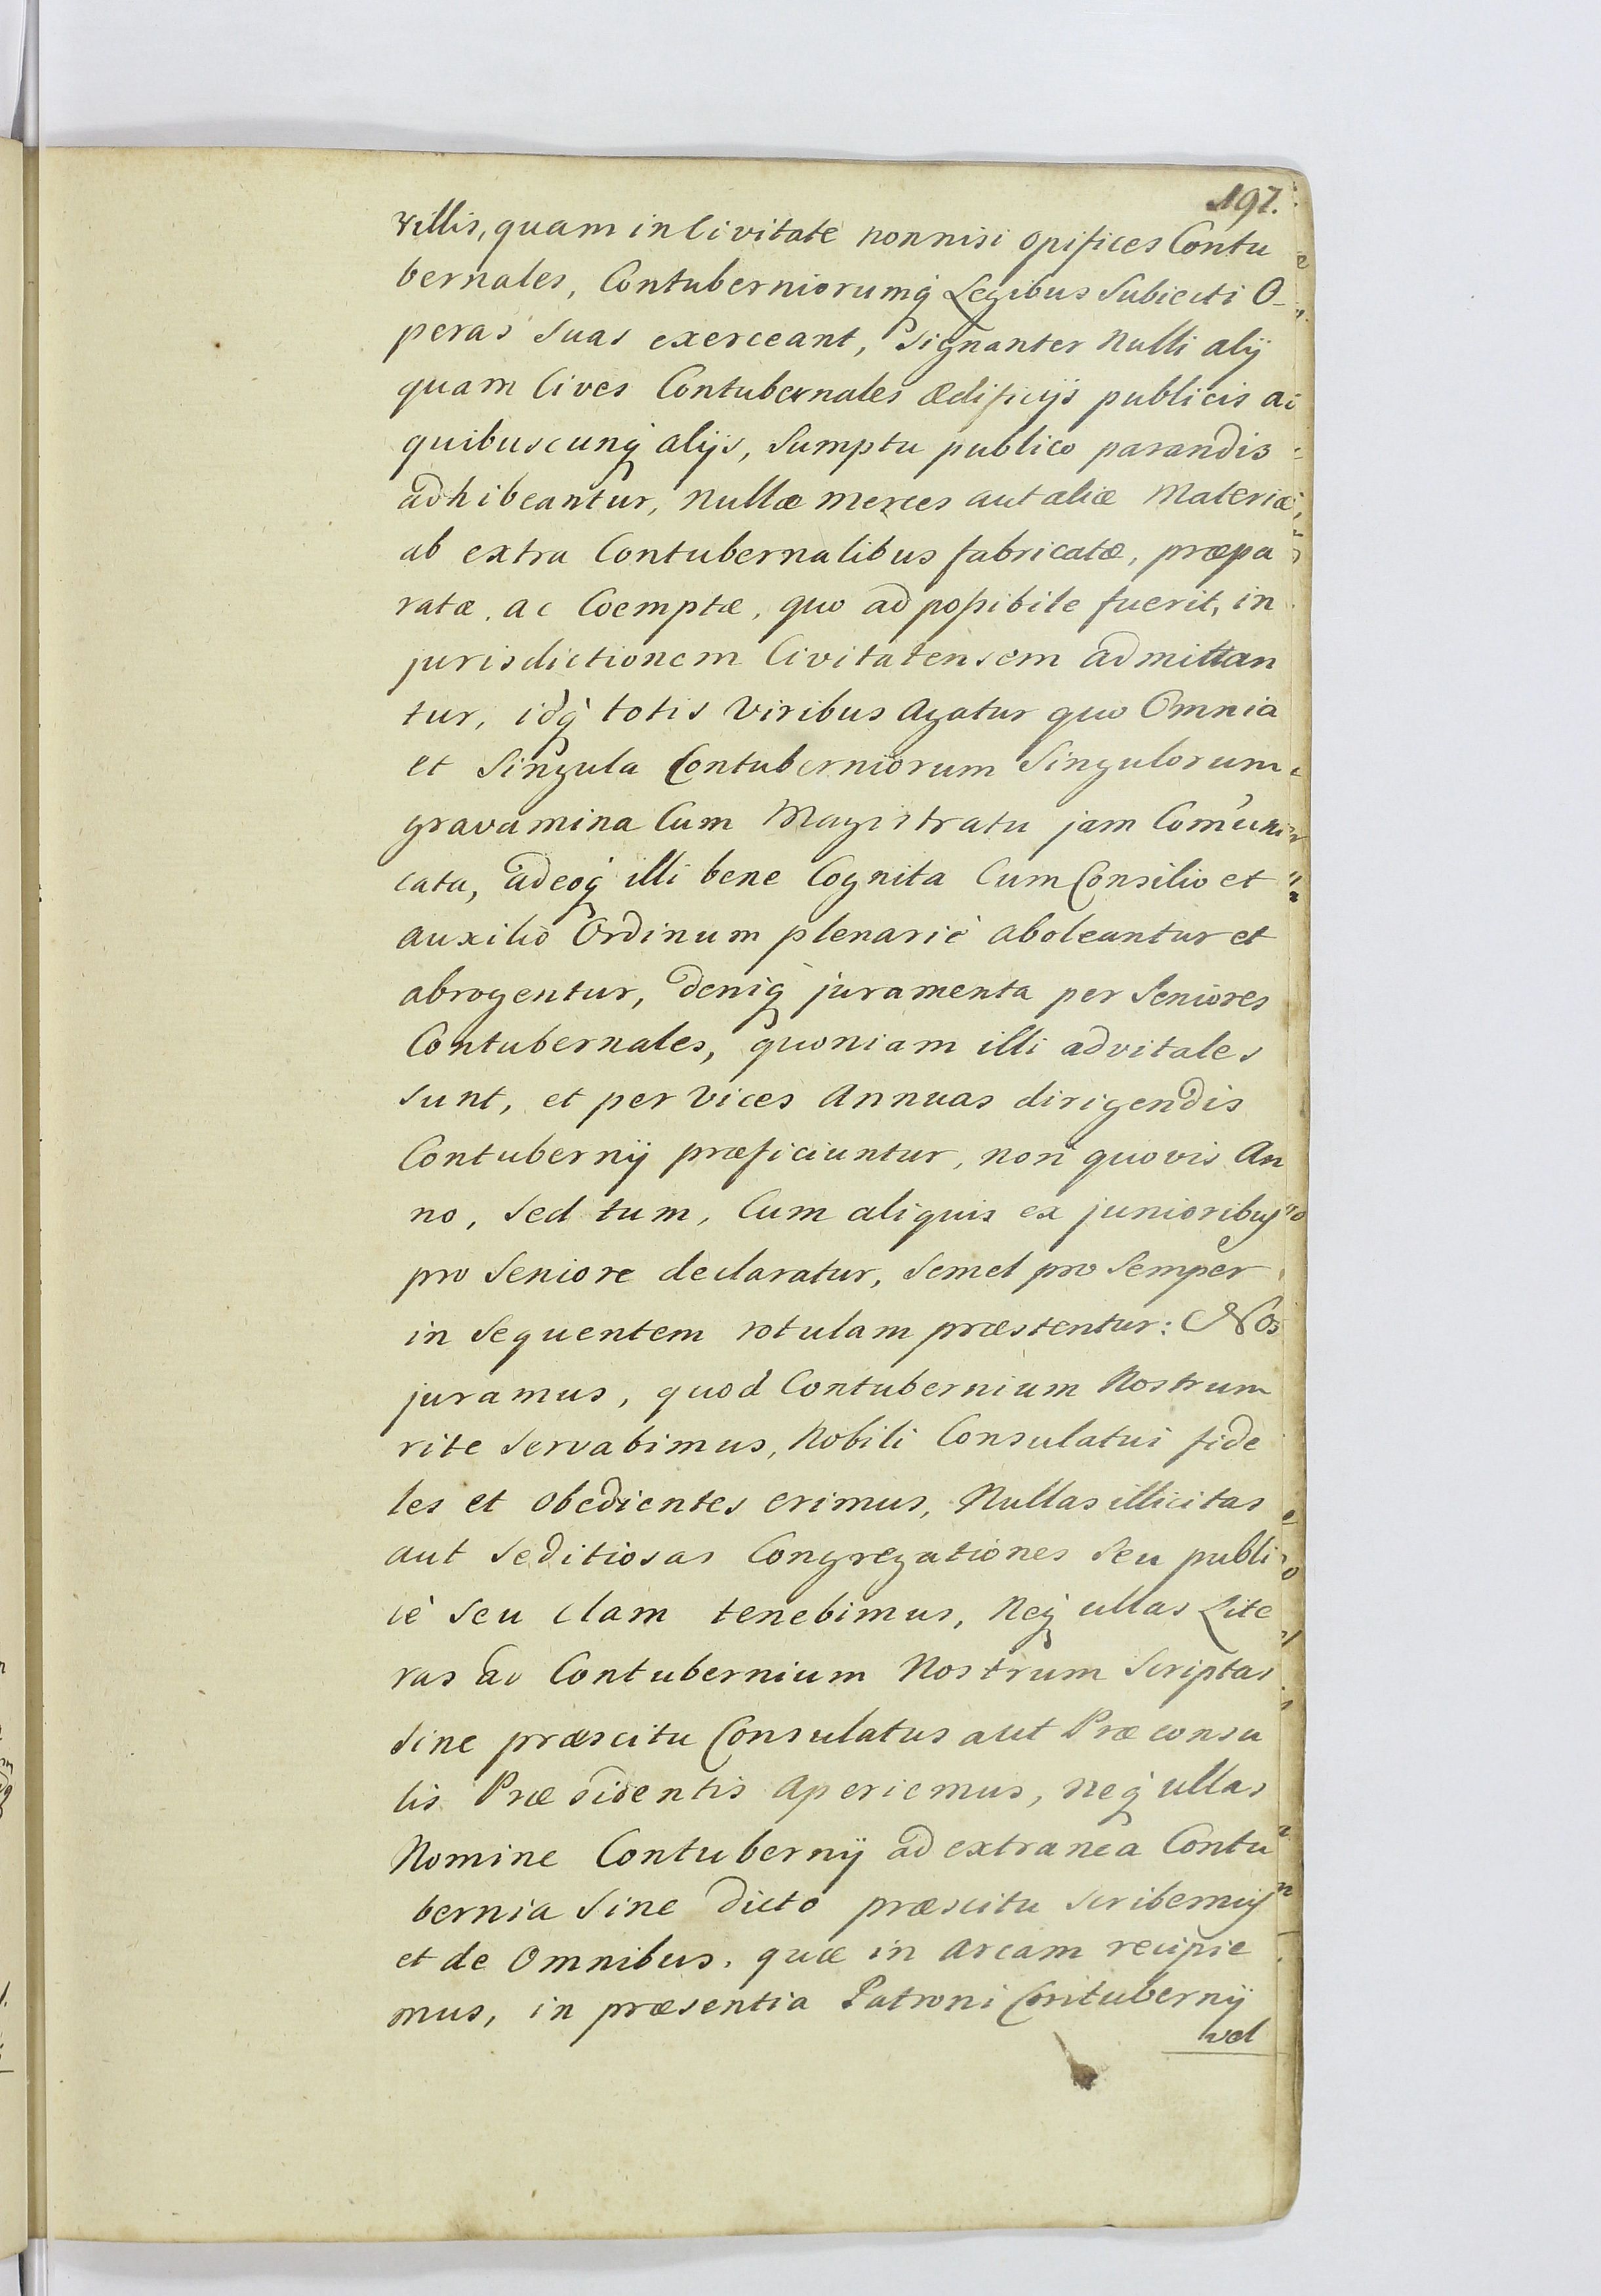 197.
villis, quam in Civitate nonnisi opifices Contu
bernales, Contuberniorumq́ Legibus Subiecti O-
peras suas exerceant, signanter Nulli alÿ
quam Cives Contubernales ædificÿs publicis ac
quibuscunq́ alÿs, Sumptu publico parandis
adhibeantur, Nullæ merces aut aliæ Materiæ
ab extra Contubernalibus fabricatæ, præpa
ratæ, ac Coemptæ, quo ad poſsibile fuerit, in
jurisdictionem Civitatensem admittan
tur, idq́ totis Viribus Agatur quo Omnia
et Singula Contuberniorum Singulorum
gravamina Cum Magistratu jam Com̃uni
cata, adeoq́ illi bene Cognita Cum Consilio et
auxilio Ordinum plenariè aboleantur et
abrogentur, deniq́ juramenta per Seniores
Contubernales, quoniam illi advitales
sunt, et per Vices Annuas dirigendis
Contubernÿ præficiuntur, non quovis An
no, Sed tum, Cum aliquis ex junioribus
pro Seniore declaratur, Semel pro Semper
in Sequentem rotulam præstentur: Nos
juramus, quod Contubernium Nostrum
rite Servabimus, Nobili Consulatui fide
les et Obedientes erimus, Nullas illicitas
aut Seditiosas Congregationes Seu publi
cè Seu clam tenebimus, Neq́ ullas Lite
ras ad Contubernium Nostrum Scriptas
Sine præscitu Consulatus aut Præconsu
lis Præsidentis Aperiemus, neq́ ullas
Nomine Contubernÿ ad extranea Contu
bernia Sine dicto præscitu Scribemus
et de Omnibus, quæ in Arcam recipie
mus, in præsentia Patroni Contubernÿ
vel